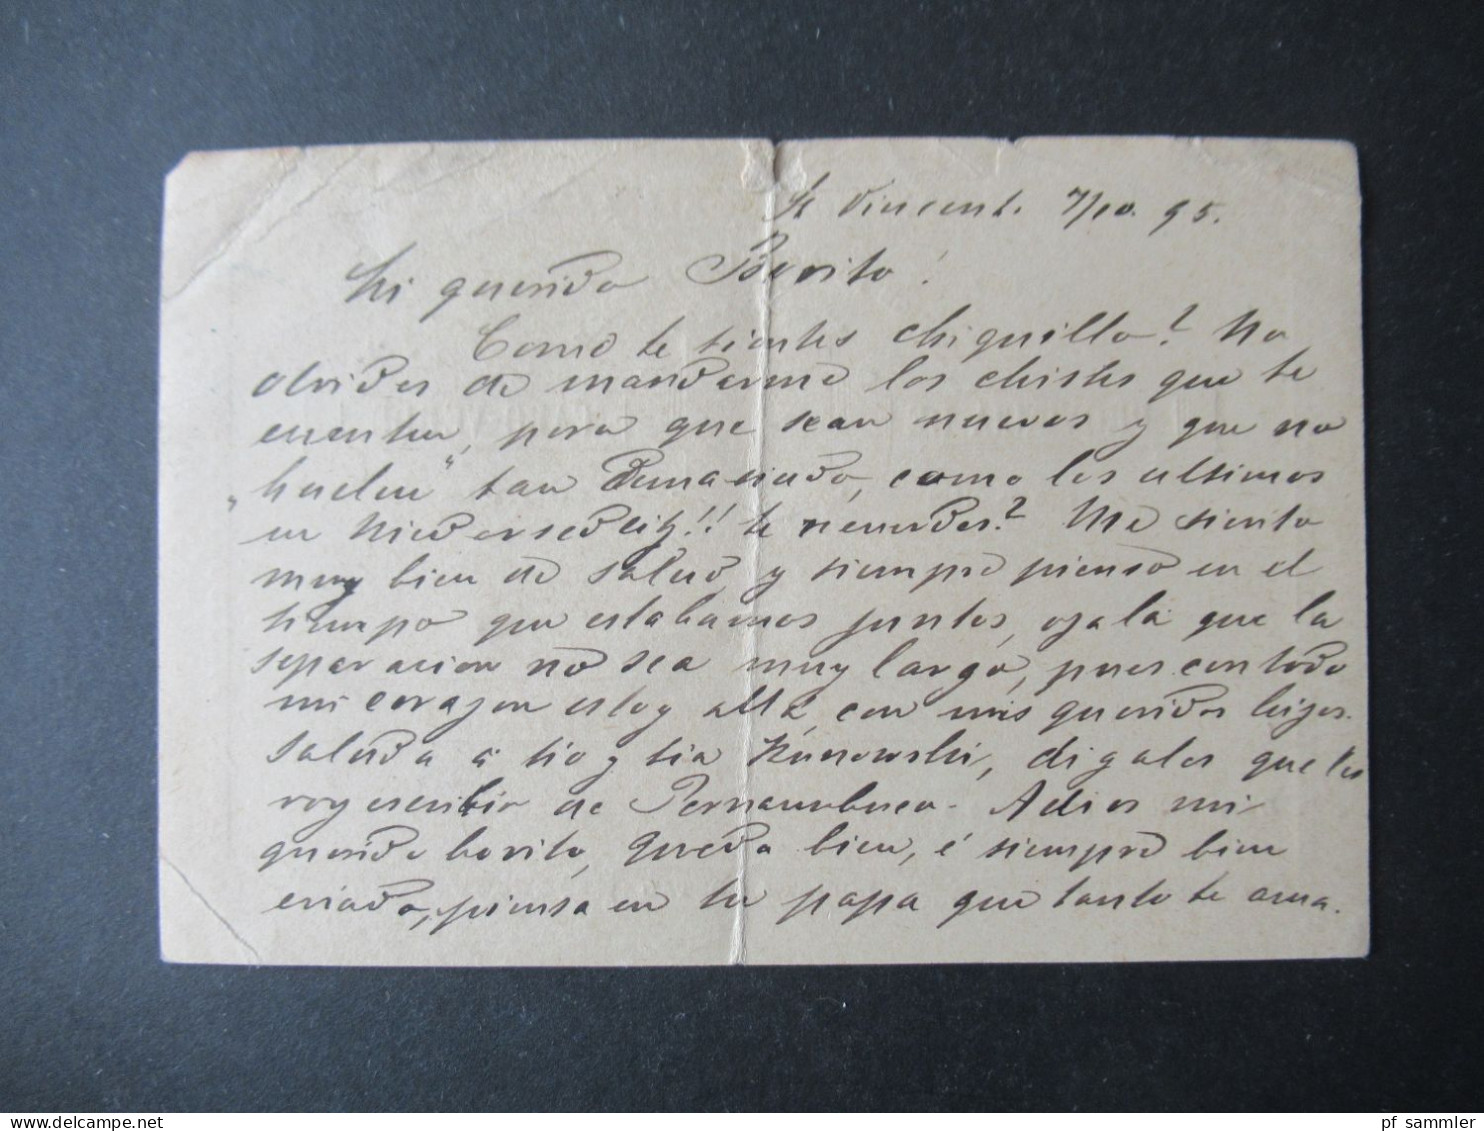 St Vincent. 7/10. 95.
Mi querido Borito!
Como te sientes chiquillo? No
olvides de mandarme los chistes que te
cuenten, para que sean nuevos y que no
„huelen" tan demasiado, como los ultimos
en Niedersedlitz!! te recuerdas? Me siento
muy bien de salud, y siempre pienso en el
tiempo que estabamos juntos, ojalá que la
separacion no sea muy larga, pues con todo
mi corazon estoy allá, con mis queridos hijos.
Saluda á tio y tia Kunowski, digales que les
voy escribir de Pernambuco. Adios mi
querido borito, queda bien, é siempre bien
criado, piensa en tu papa que tanto te ama.
pf sammler